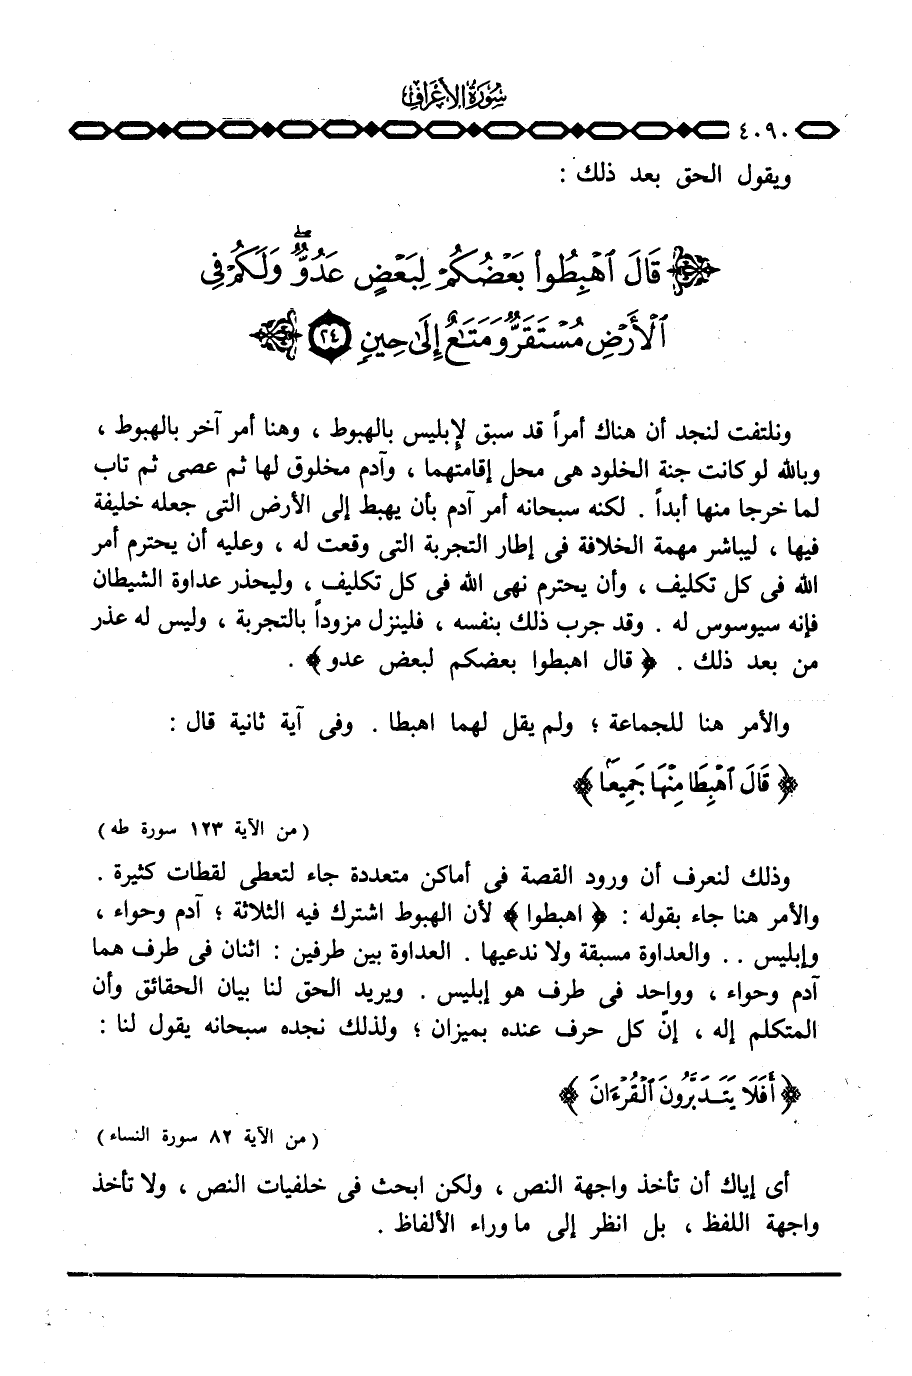 سُورَةُ الأَعْرَافِ
٤٠٩٠
ويقول الحق بعد ذلك :
﴿ قَالَ ٱهْبِطُوا۟ بَعْضُكُمْ لِبَعْضٍ عَدُوٌّ ۖ وَلَكُمْ فِى
ٱلْأَرْضِ مُسْتَقَرٌّ وَمَتَٰعٌ إِلَىٰ حِينٍ ٢٤ ﴾
ونلتفت لنجد أن هناك أمراً قد سبق لإبليس بالهبوط ، وهنا أمر آخر بالهبوط ،
وبالله لو كانت جنة الخلود هى محل إقامتهما ، وآدم مخلوق لها ثم عصى ثم تاب
لما خرجا منها أبداً . لكنه سبحانه أمر آدم بأن يهبط إلى الأرض التى جعله خليفة
فيها ، ليباشر مهمة الخلافة فى إطار التجربة التى وقعت له ، وعليه أن يحترم أمر
الله فى كل تكليف ، وأن يحترم نهى الله فى كل تكليف ، وليحذر عداوة الشيطان
فإنه سيوسوس له . وقد جرب ذلك بنفسه ، فلينزل مزوداً بالتجربة ، وليس له عذر
من بعد ذلك . ﴿ قال اهبطوا بعضكم لبعض عدو ﴾ .
والأمر هنا للجماعة ؛ ولم يقل لهما اهبطا . وفى آية ثانية قال :
﴿ قَالَ ٱهْبِطَا مِنْهَا جَمِيعًۢا ﴾
( من الآية ١٢٣ سورة طه )
وذلك لنعرف أن ورود القصة فى أماكن متعددة جاء لتعطى لقطات كثيرة .
والأمر هنا جاء بقوله : ﴿ اهبطوا ﴾ لأن الهبوط اشترك فيه الثلاثة ؛ آدم وحواء ،
وإبليس . . والعداوة مسبقة ولا ندعيها . العداوة بين طرفين : اثنان فى طرف هما
آدم وحواء ، وواحد فى طرف هو إبليس . ويريد الحق لنا بيان الحقائق وأن
المتكلم إله ، إنّ كل حرف عنده بميزان ؛ ولذلك نجده سبحانه يقول لنا :
﴿ أَفَلَا يَتَدَبَّرُونَ ٱلْقُرْءَانَ ﴾
( من الآية ٨٢ سورة النساء )
أى إياك أن تأخذ واجهة النص ، ولكن ابحث فى خلفيات النص ، ولا تأخذ
واجهة اللفظ ، بل انظر إلى ما وراء الألفاظ .